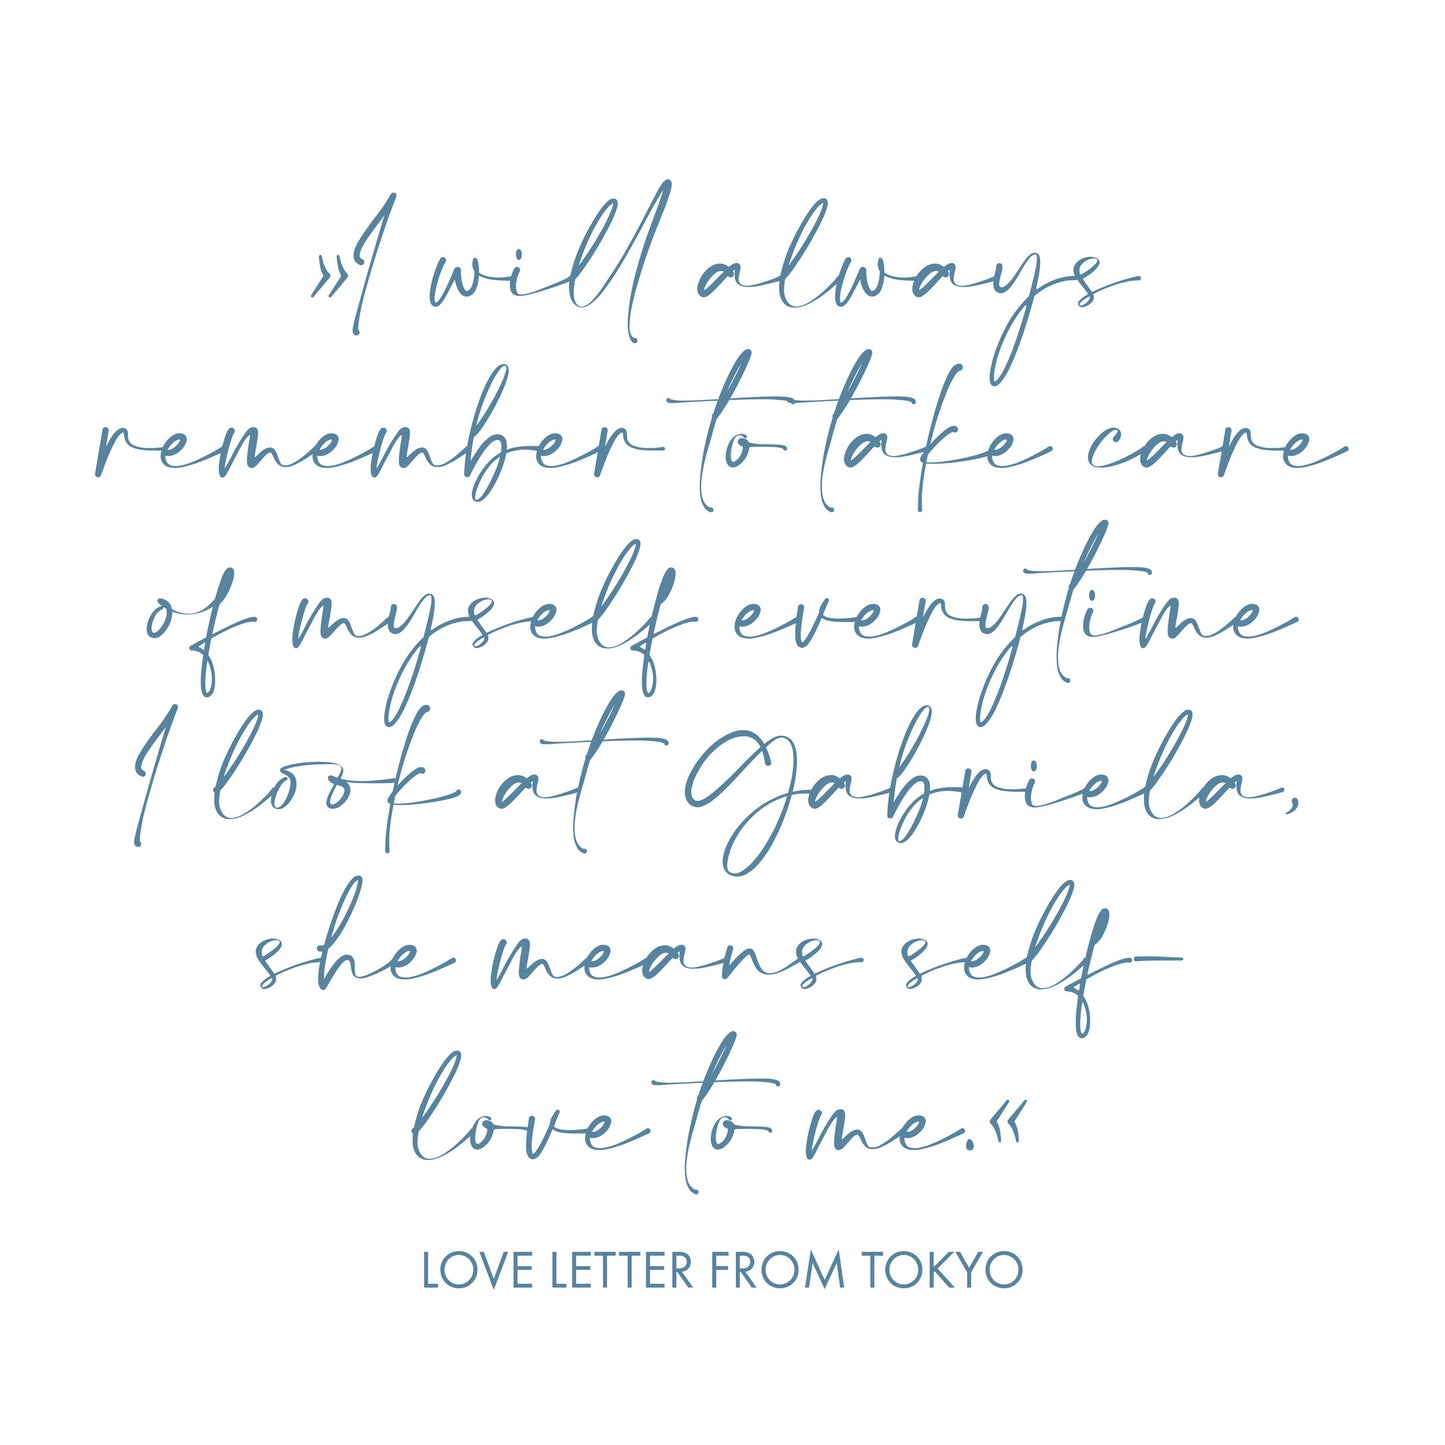 »I will always
remember to take care
of myself everytime
I look at Gabriela,
she means self-
love to me.«
LOVE LETTER FROM TOKYO